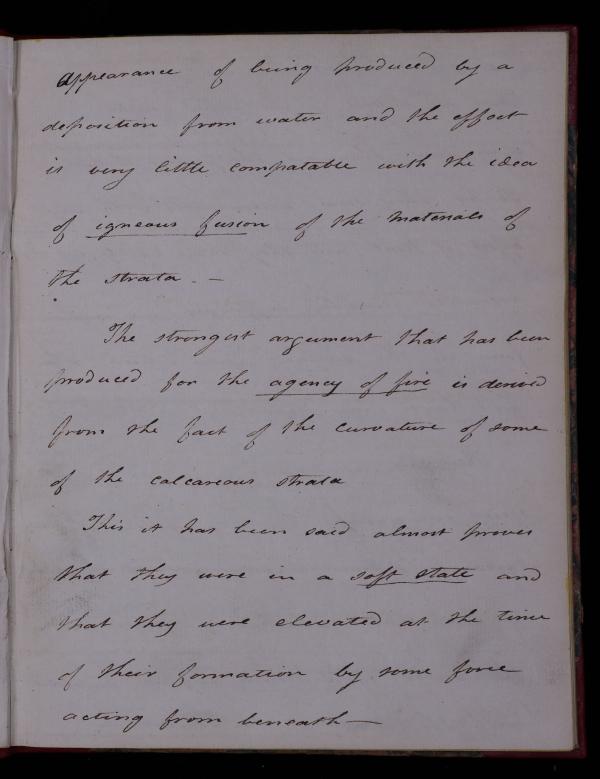 appearance of being produced by a
deposition from water and the effect
is very little compatable with the idea
of igneous fusion of the materials of
the strata. —
The strongest argument that has been
produced for the agency of fire is derived
from the fact of the curvature of some
of the calcareous strata
This it has been said almost proves
that they were in a soft state and
that they were elevated at the time
of their formation by some force
acting from beneath —